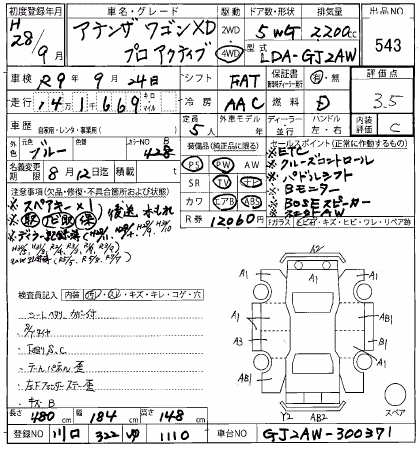 初度登録年月 車名・グレード 駆動 ドア数・形状 排気量 出品NO
H28/9月 アテンザ ワゴン XD 2WD 5 WG 2200cc 543
プロアクティブ 4WD 型式 LDA-GJ2AW
車検 R9年 9月 24日 シフト FAT 保証書 有・無 評価点
走行 141,669 キロ マイル 冷房 AAC 燃料 D 3.5
車歴 自家用・レンタ・事業用( ) 定員 5人 外車モデル ディーラー・並行 ハンドル 左・右 内装評価 C
色 元色 ブルー 色替 カラーNo 42B
名義変更期限 8月 12日迄 積載 t
装備品(純正品に限る)
PS PW AW
SR TV ナビ
カワ エアB ABS
R券 12060円
セールスポイント(正常に作動するもの)
※ETC
※クルーズコントロール
※パドルシフト
※Bモニター
※BOSEスピーカー
Fガラス キズ・ヒビ・ワレ・リペア跡
注意事項(欠品・修復・不具合箇所およびサビ等)
※スペアキー×1
後送 水もれ
検査員記入 内装 汚れ・スレ・キズ・キレ・コゲ・穴
シートヘタリ カバー付
下廻りS,C
テールパネル歪
左Fフェンダーステー歪
キズ B
A2
A1 A1
A1 A1
A1 AB1
A3 B1
A1 A1
Y2 AB2
スペア
長さ 480cm 幅 184cm 高さ 148cm
登録NO 川口 322 ゆ 1110 車台NO GJ2AW-300371